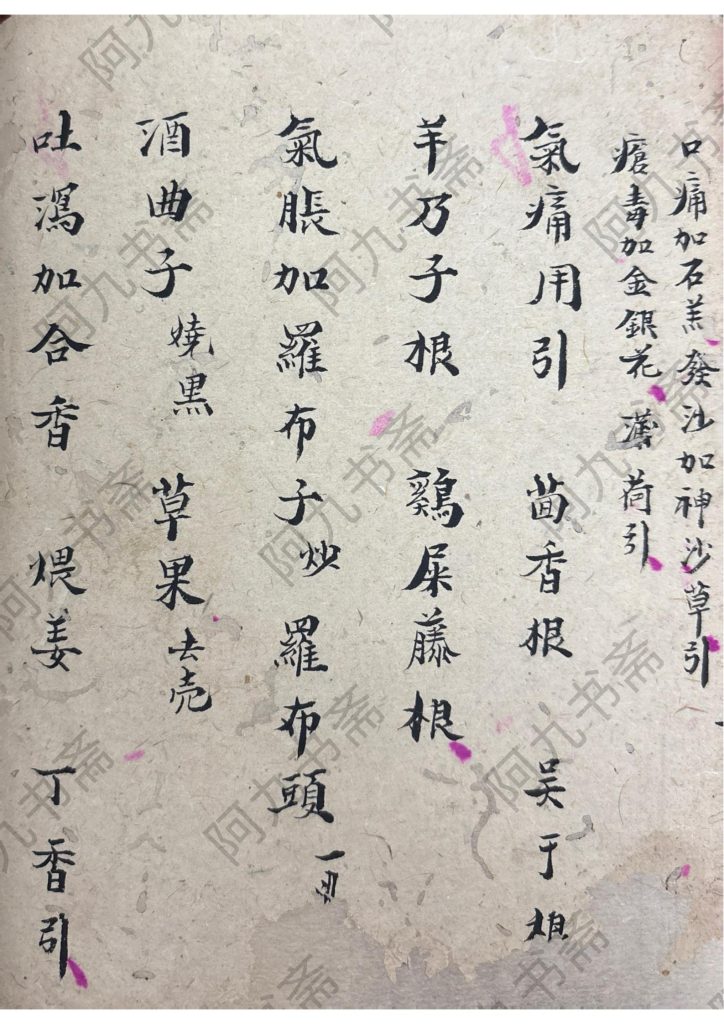 口痛加石羔發沙加神沙草引
瘡毒加金銀花 薄荷引
氣痛用引 茴香根 吴于根
羊乃子根 鷄屎藤根
氣脹加羅布子炒羅布頭
酒曲子 燒黑 草果 去壳
吐瀉加合香 煨姜 丁香引
阿九书斋